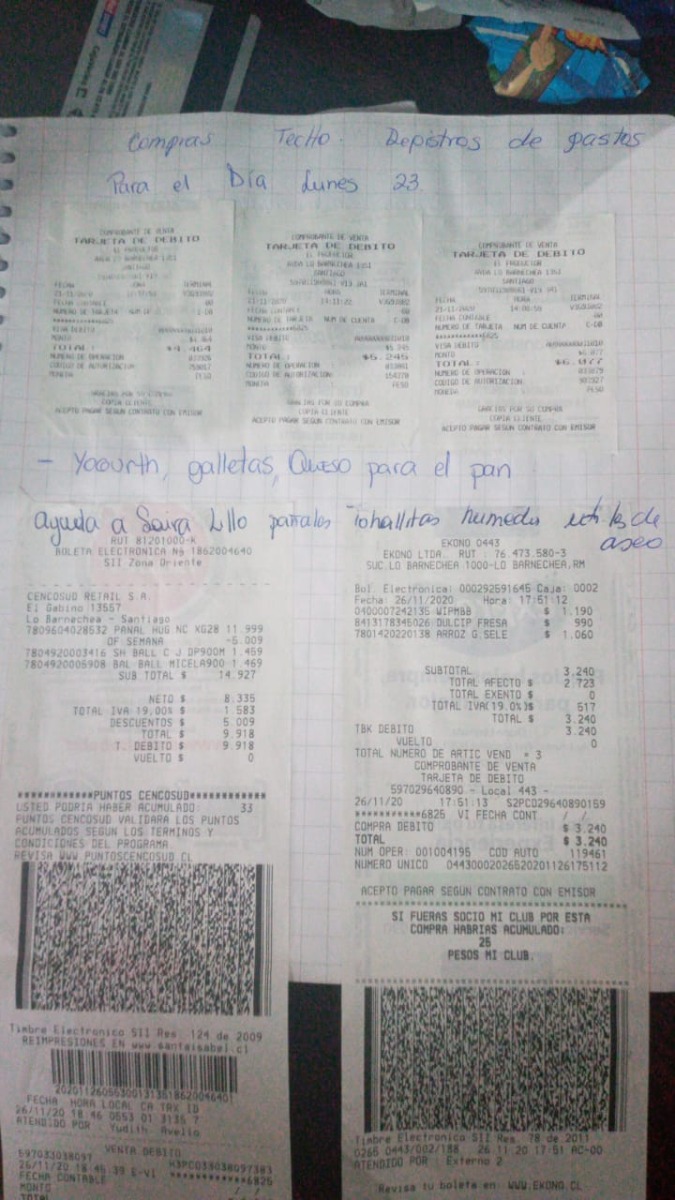 Compras Techo. Registros de gastos
Para el Día Lunes 23
COMPROBANTE DE VENTA
TARJETA DE DEBITO
SANTIAGO
FECHA HORA TERMINAL
FECHA CONTABLE
NUMERO DE TARJETA NUM DE CUENTA
VISA DEBITO
MONTO
TOTAL: $4.464
NUMERO DE OPERACION
CODIGO DE AUTORIZACION
MONEDA PESO
GRACIAS POR SU COMPRA
COPIA CLIENTE
ACEPTO PAGAR SEGUN CONTRATO CON EMISOR
COMPROBANTE DE VENTA
TARJETA DE DEBITO
SANTIAGO
FECHA HORA TERMINAL
FECHA CONTABLE
NUMERO DE TARJETA NUM DE CUENTA
VISA DEBITO
MONTO
TOTAL: $5.245
NUMERO DE OPERACION
CODIGO DE AUTORIZACION:
MONEDA PESO
GRACIAS POR SU COMPRA
COPIA CLIENTE
ACEPTO PAGAR SEGUN CONTRATO CON EMISOR
COMPROBANTE DE VENTA
TARJETA DE DEBITO
SANTIAGO
FECHA HORA TERMINAL
FECHA CONTABLE
NUMERO DE TARJETA NUM DE CUENTA
VISA DEBITO
MONTO
TOTAL: $6.877
NUMERO DE OPERACION
CODIGO DE AUTORIZACION:
MONEDA PESO
GRACIAS POR SU COMPRA
COPIA CLIENTE
ACEPTO PAGAR SEGUN CONTRATO CON EMISOR
- Yogurth, galletas, Queso para el pan
ayuda a Saira Lillo pañales Tohallitas humeda utiles de
aseo
RUT 81201000-K
BOLETA ELECTRONICA Nº 1862004640
SII Zona Oriente
CENCOSUD RETAIL S.A.
El Gabino 13557
Lo Barnechea - Santiago
7809604028532 PANAL HUG NC XG28 11.999
OF SEMANA -5.009
7804920003416 SH BALL C J DP900M 1.459
7804920005908 BAL BALL MICELA900 1.469
SUB TOTAL $ 14.927
NETO $ 8.335
TOTAL IVA 19,00% $ 1.583
DESCUENTOS $ 5.009
TOTAL $ 9.918
T. DEBITO $ 9.918
VUELTO $ 0
***********PUNTOS CENCOSUD***********
USTED PODRIA HABER ACUMULADO: 33
PUNTOS CENCOSUD VALIDARA LOS PUNTOS
ACUMULADOS SEGUN LOS TERMINOS Y
CONDICIONES DEL PROGRAMA
REVISA WWW.PUNTOSCENCOSUD.CL
Timbre Electronico SII Res. 124 de 2009
REIMPRESIONES EN www.santaisabel.cl
FECHA HORA LOCAL CA TRX ID
26/11/20 18 46 0653 01 3135 7
ATENDIDO POR Yudith, Avelio
VENTA DEBITO
597033038091
FECHA CONTABLE
MONTO
TOTAL
EKONO 0443
EKONO LTDA. RUT : 76.473.580-3
SUC.LO BARNECHEA 1000-LO BARNECHEA,RM
Bol. Electronica: 000292591645 Caja: 0002
Fecha: 26/11/2020 Hora: 17:51:12
0400007242135 WIPMBB $ 1.190
8413178345026 DULCIP FRESA $ 990
7801420220138 ARROZ G.SELE $ 1.060
SUBTOTAL 3.240
TOTAL AFECTO $ 2.723
TOTAL EXENTO $ 0
TOTAL IVA(19.0%)$ 517
TOTAL $ 3.240
TBK DEBITO 3.240
VUELTO 0
TOTAL NUMERO DE ARTIC VEND = 3
COMPROBANTE DE VENTA
TARJETA DE DEBITO
597029640890 - Local 443 -
26/11/20 17:51:13 S2PC029640890159
***********6825 VI FECHA CONT / /
COMPRA DEBITO $ 3.240
TOTAL $ 3.240
NUM OPER: 001004195 COD AUTO 119461
NUMERO UNICO 04430002026520201126175112
ACEPTO PAGAR SEGUN CONTRATO CON EMISOR
SI FUERAS SOCIO MI CLUB POR ESTA
COMPRA HABRIAS ACUMULADO:
25
PESOS MI CLUB.
Timbre Electronico SII Res. 78 de 2011
0266 0443/002/188 26.11.20 17:51 AC-00
ATENDIDO POR : Externo 2
Revisa tu boleta en: WWW.EKONO.CL